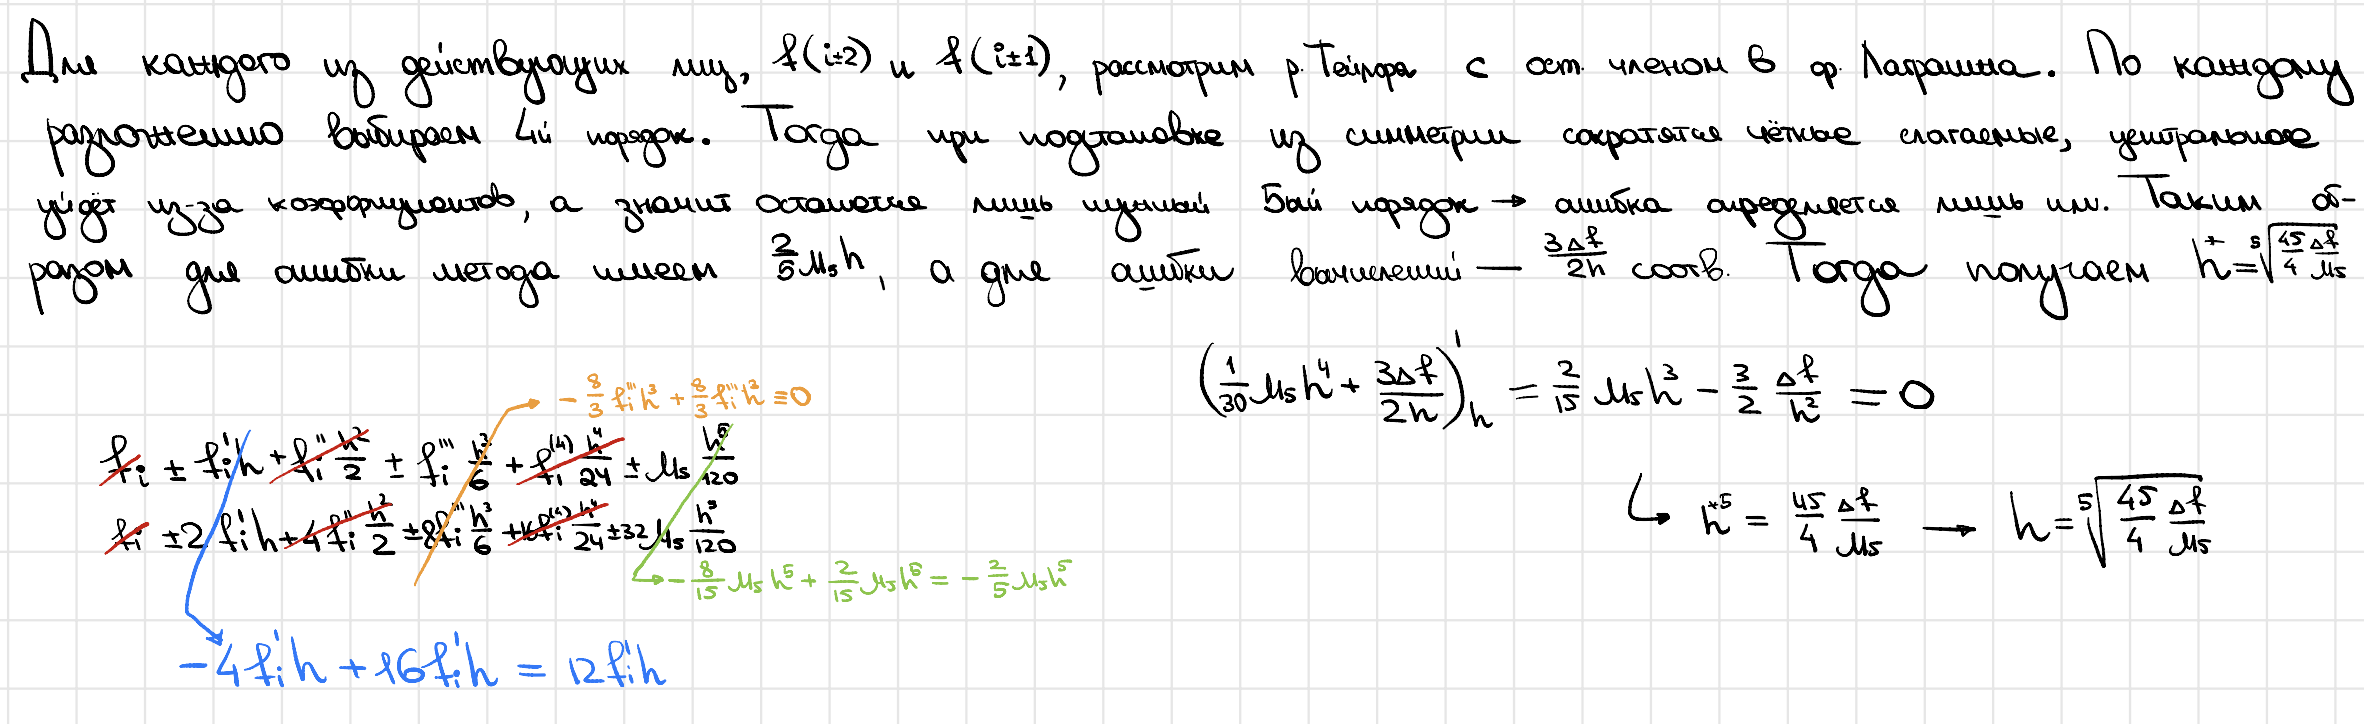 Для каждого из действующих лиц, f(i±2) и f(i±1), рассмотрим р. Тейлора с ост. членом в ф. Лагранжа. По каждому
разложению выбираем 4й порядок. Тогда при подстановке из симметрии сократятся чётные слагаемые, центральное
уйдёт из-за коэффициентов, а значит останется лишь нужный 5ый порядок → ошибка определяется лишь им. Таким об-
разом для ошибки метода имеем 2/5 M₅h, а для ошибки вычислений — 3Δf/2h соотв. Тогда получаем h* = ⁵√(45/4 Δf/M₅)
(1/30 M₅h⁴ + 3Δf/2h)'ₕ = 2/15 M₅h³ − 3/2 Δf/h² = 0
− 8/3 fᵢ'''h³ + 8/3 fᵢ'''h³ ≡ 0
fᵢ ± fᵢ'h + fᵢ'' h²/2 ± fᵢ''' h³/6 + fᵢ⁽⁴⁾ h⁴/24 ± M₅ h⁵/120
fᵢ ± 2fᵢ'h + 4fᵢ'' h²/2 ± 8fᵢ''' h³/6 + 16fᵢ⁽⁴⁾ h⁴/24 ± 32 M₅ h⁵/120
↳ h*⁵ = 45/4 Δf/M₅ → h = ⁵√(45/4 Δf/M₅)
− 8/15 M₅h⁵ + 2/15 M₅h⁵ = − 2/5 M₅h⁵
−4fᵢ'h + 16fᵢ'h = 12fᵢ'h